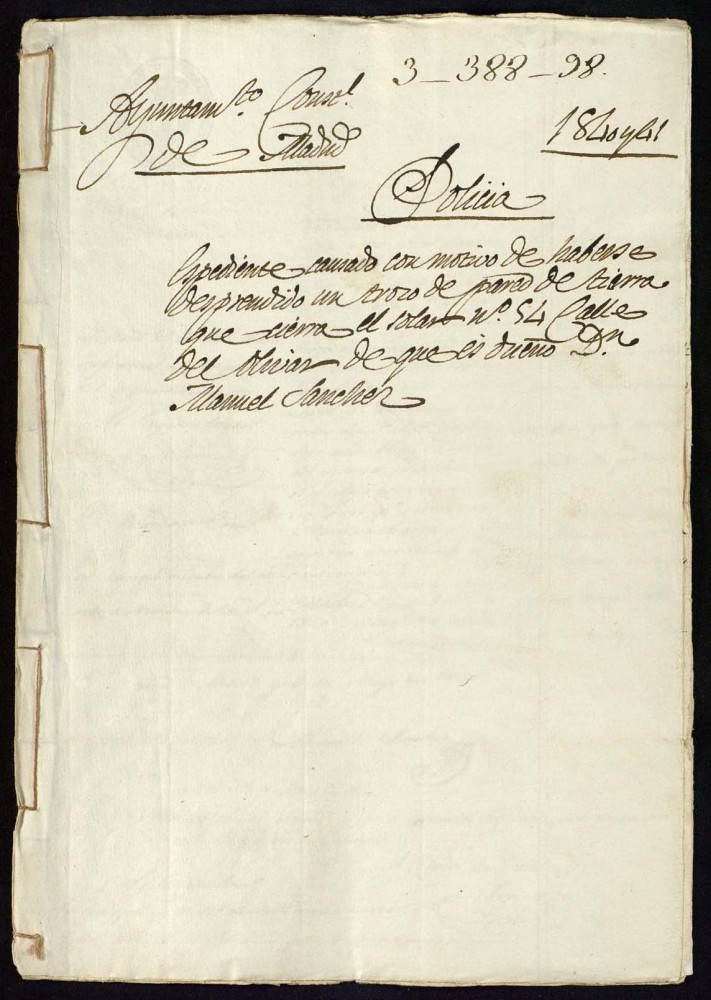 3_388_98.
Ayuntam.to Const.l
de Madrid
1840 y 41
Policia
Espediente causado con motivo de haberse
desprendido un trozo de pared de tierra
que cierra el solar nº. 54 Calle
del Olivar de que es dueño Dn.
Manuel Sanchez